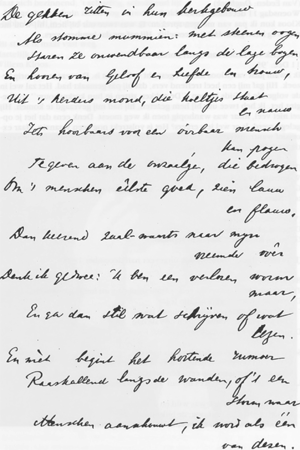 De gekken zitten in hun kerkgebouw
Als stomme mummiën: met steenen oogen
Staren ze onwendbaar langs de lage bogen
En hooren van Geloof en Liefde en trouw,
Uit 's herders mond, die koeltjes staat
en nauw
Iets hoorbaars voor een mensch
kan pogen
Te geven aan de onzaalge, die bedrogen
Om 's menschen êelste goed, zien lauw
en flauw,
Dan keerend zaal-waarts naar myn
Denk ik gedwee: 'k ben een verloren worm
maar,
En ga dan stil wat schrijven of wat
lezen.
En niet begint het hortende rumoer
Raaskallend langs de wanden, of 's een
storm naar
Menschen aankomt, ik word als één
van dezen.